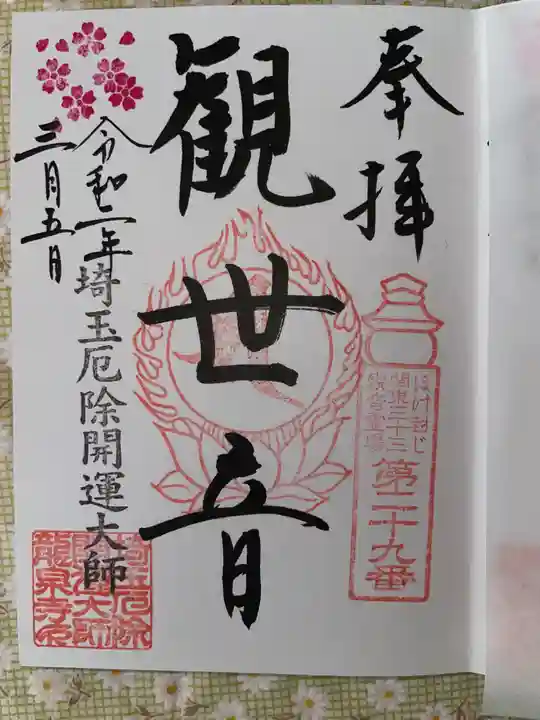 奉拝
ぼけ封じ
関東三十三
観音霊場
第二十九番
観世音
令和二年
三月五日
埼玉厄除開運大師
埼玉厄除
開運大師
龍泉寺印